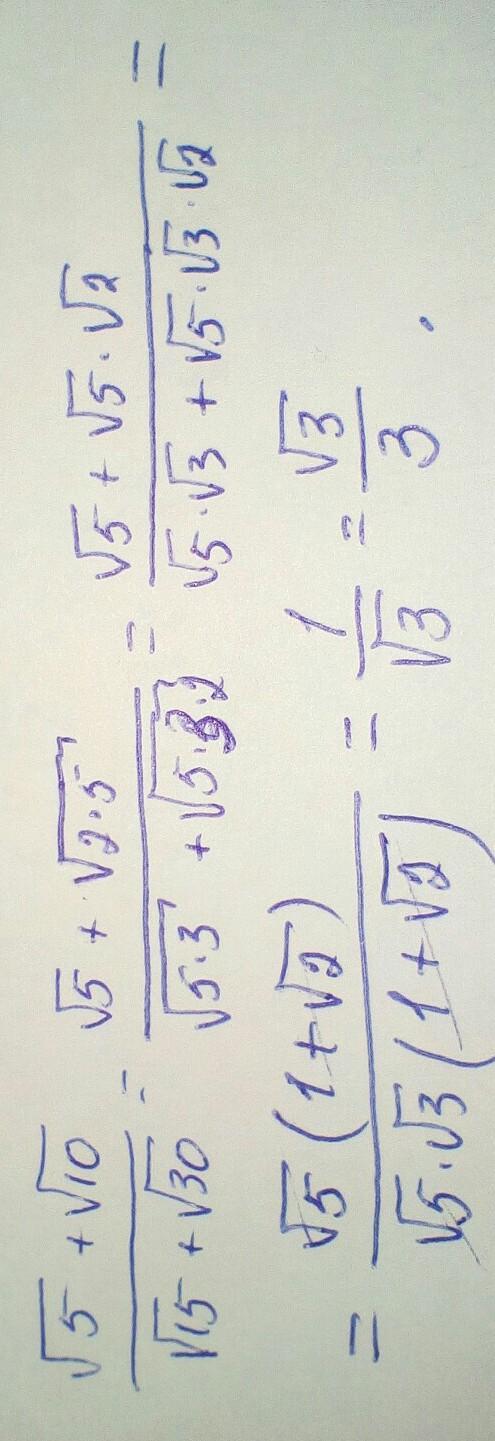 (√5 + √10)/(√15 + √30) = (√5 + √(2·5))/(√(5·3) + √(5·3·2)) = (√5 + √5·√2)/(√5·√3 + √5·√3·√2) =
= (√5(1+√2))/(√5·√3(1+√2)) = 1/√3 = √3/3.